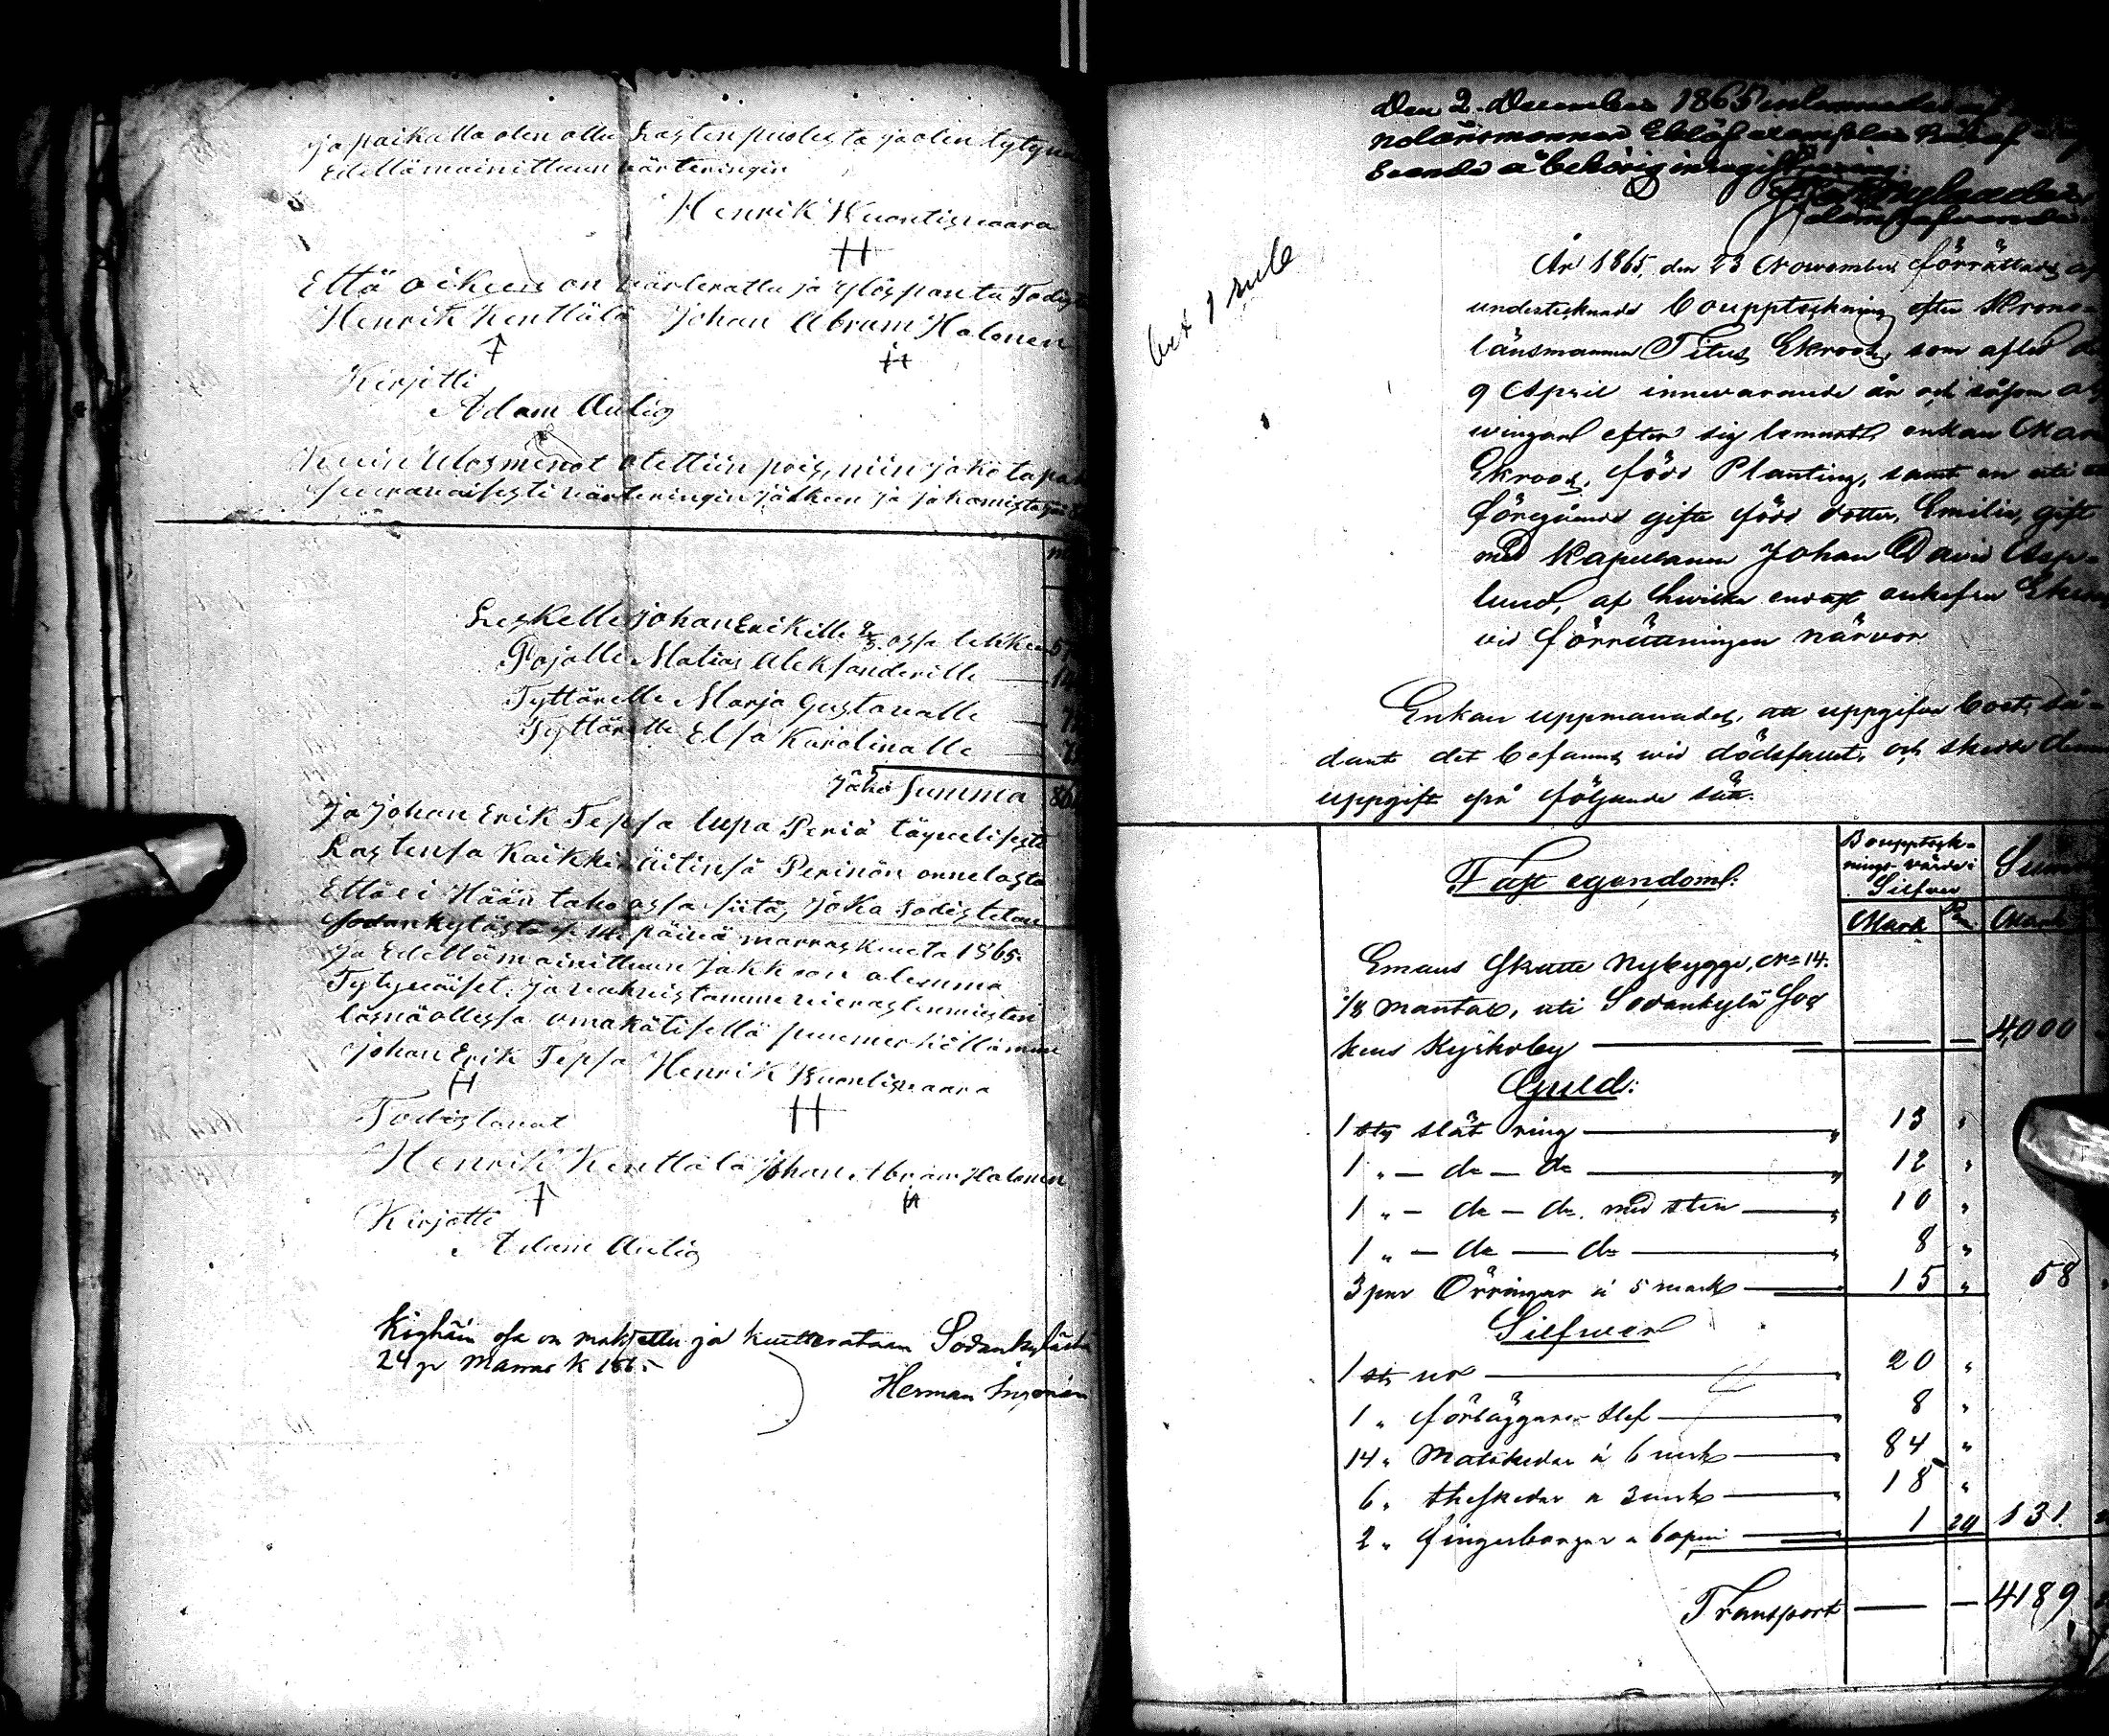 ja paikalla olen ollu Lasten puolesta ja olen tytyv
Edellämainittuun värteringin
Henrik Kuontisvaara
Että oikein on värterattu ja ylöspantu Todist
Henrik Kenttälä Johan Abram Halonen
Kirjotti
Adam Aulig
Kuin Ulosmenot otettiin pois, niin jako tapa
seuravaisesti värteringin jälkeen ja jakamista
Leskelle Johan Erikille 2/3 ossa lekkeen
Pojalle Matias Aleksanderille
Tyttärelle Marja Gustavalle
Tyttärelle Elsa Karolinalle
Jako Summa
Ja Johan Erik Tepsa lupa Periä täyvelisesti
Lastensa Kaikki äitinsä Perinön onnelasta
Että ei Hään tako ossa siitä, Joka todistetan
Sodankylästä 14 päivä marraskuuta 1865.
Ja Edellämainittuun Jakkoon olemma
Tytyväiset, ja vahvistamme vierastenmiesten
läsnäollessa omakätisellä puumerkillämme
Johan Erik Tepsa Henrik Kuontisvaara
Todistavat
Henrik Kenttälä Johan Abram Halonen
Kirjotti
Adam Aulig
Köyhäin osa on maksettu ja kvitterataan Sodankylästä
24 p Marras K 1865
Herman
bet 1 rub
Den 2 December 1865 inlemnades af
nolänsmannen Eklöf exemplar häraf
Seende å behörig inregistrering:
År 1865, den 23 November förrättades af
undertecknade bouppteckning efter Krono-
länsmannen Titus Ekroos, som afled den
9 April innevarande år och såsom arf
wingar efter sig lemnat, enkan Mar
Ekroos, född Planting, samt en uti
föregående gifte född dotter, Emilia, gift
med Kapellanen Johan David Asp-
lund, af hwilka endast enkefru Ekroos
vid förrättningen närvar
Enkan uppmanades, att uppgifva boet, så-
dant det befanns wid dödsfallet, och skedde denna
uppgift på följande sätt.
Fast egendom:
Bouppteck-
nings-värde i
Silfver
Summa
Mark Pen. Mark
Emaus Skatte Nybygge, No 14.
1/8 mantal, uti Sodankylä Soc
kens Kyrkoby 4,000
Guld:
1 st slät ring 13 "
1 " — do — do 12 "
1 " — do — do. med sten 10 "
1 " — do — do 8 "
3 par Örringar á 5 mark 15 " 58
Silfwer
1 st ur 20 "
1 " förläggare slef 8 "
14 " Matskedar á 6 mark 84 "
6 " theskedar a 3 mark 18 "
2 " fingerborgar a 60 peni 1 20 131
Transport — — 4189